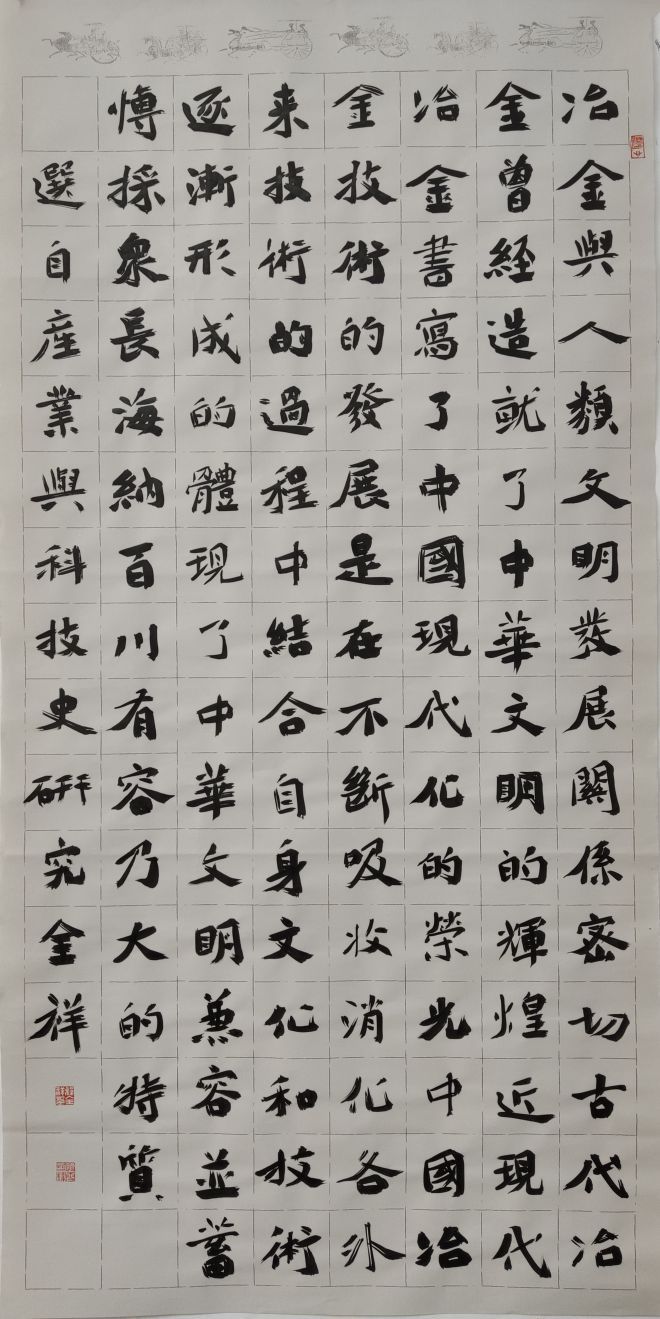 冶金與人類文明發展關係密切古代冶
金曾經造就了中華文明的輝煌近現代
冶金書寫了中國現代化的榮光中國冶
金技術的發展是在不斷吸收消化各外
来技術的過程中結合自身文化和技術
逐漸形成的體現了中華文明兼容並蓄
愽採衆長海納百川有容乃大的特質
選自産業與科技史研究金祥